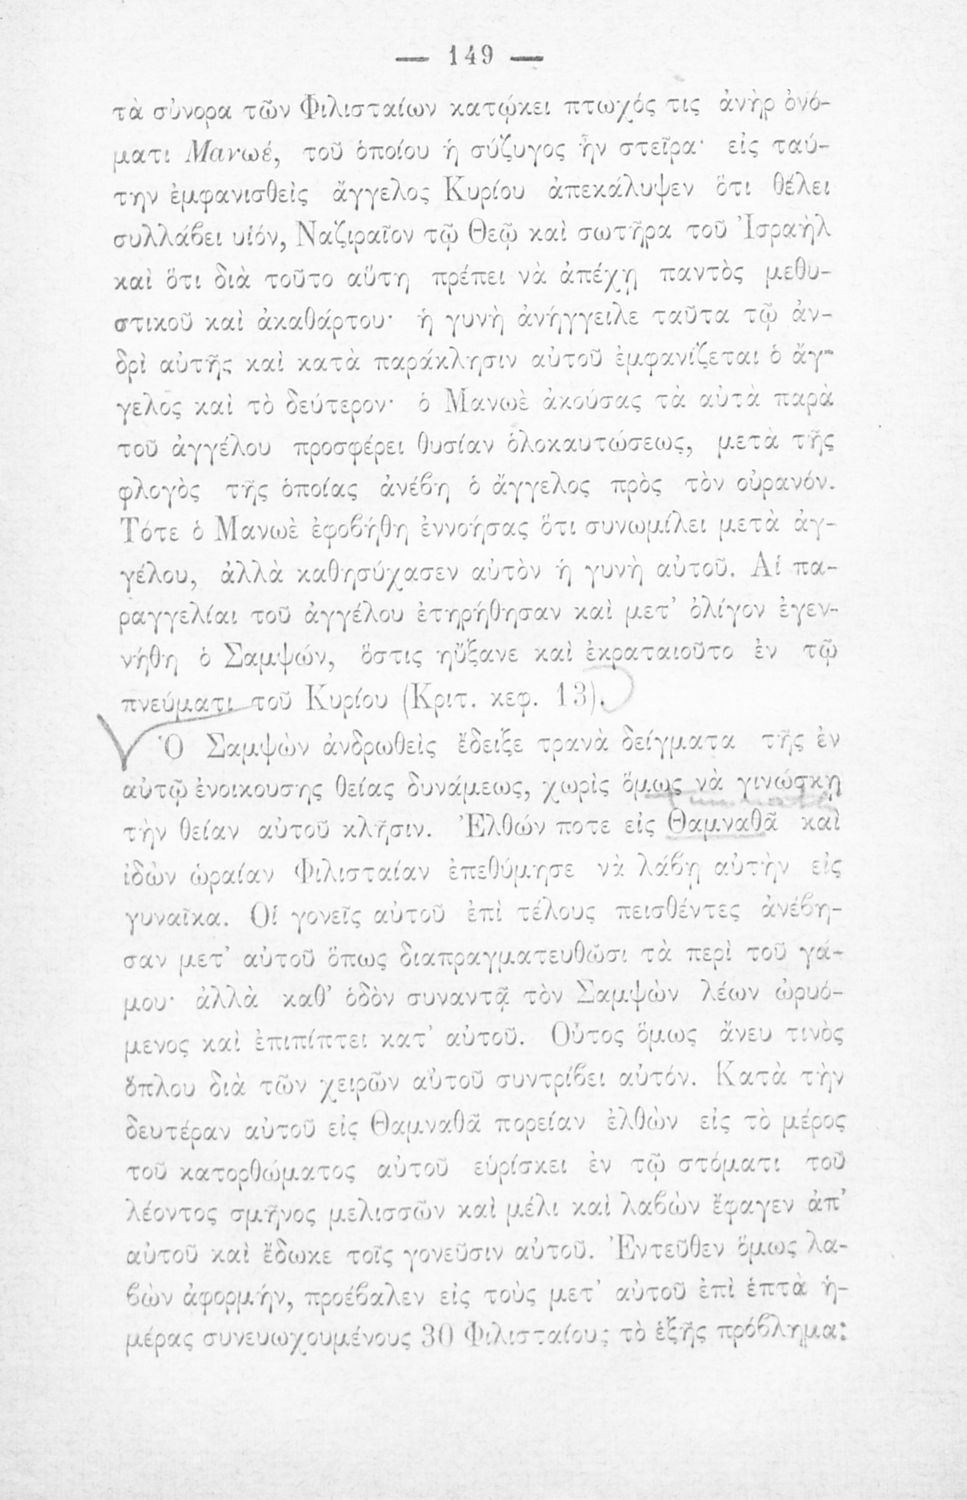 — 149 —
τὰ σύνορα τῶν Φιλισταίων κατῴκει πτωχός τις ἀνὴρ ὀνό-
ματι Μανωέ, τοῦ ὁποίου ἡ σύζυγος ἦν στεῖρα· εἰς ταύ-
την ἐμφανισθεὶς ἄγγελος Κυρίου ἀπεκάλυψεν ὅτι θέλει
συλλάβει υἱόν, Ναζιραῖον τῷ Θεῷ καὶ σωτῆρα τοῦ Ἰσραὴλ
καὶ ὅτι διὰ τοῦτο αὕτη πρέπει νὰ ἀπέχῃ παντὸς μεθυ-
στικοῦ καὶ ἀκαθάρτου· ἡ γυνὴ ἀνήγγειλε ταῦτα τῷ ἀν-
δρὶ αὐτῆς καὶ κατὰ παράκλησιν αὐτοῦ ἐμφανίζεται ὁ ἄγ-
γελος καὶ τὸ δεύτερον· ὁ Μανωὲ ἀκούσας τὰ αὐτὰ παρὰ
τοῦ ἀγγέλου προσφέρει θυσίαν ὁλοκαυτώσεως, μετὰ τῆς
φλογὸς τῆς ὁποίας ἀνέβη ὁ ἄγγελος πρὸς τὸν οὐρανόν.
Τότε ὁ Μανωὲ ἐφοβήθη ἐννοήσας ὅτι συνωμίλει μετὰ ἀγ-
γέλου, ἀλλὰ καθησύχασεν αὐτὸν ἡ γυνὴ αὐτοῦ. Αἱ πα-
ραγγελίαι τοῦ ἀγγέλου ἐτηρήθησαν καὶ μετ' ὀλίγον ἐγεν-
νήθη ὁ Σαμψών, ὅστις ηὔξανε καὶ ἐκραταιοῦτο ἐν τῷ
πνεύματι τοῦ Κυρίου (Κριτ. κεφ. 13).
Ὁ Σαμψὼν ἀνδρωθεὶς ἔδειξε τρανὰ δείγματα τῆς ἐν
αὐτῷ ἐνοικουσης θείας δυνάμεως, χωρὶς ὅμως νὰ γινώσκῃ
τὴν θείαν αὐτοῦ κλῆσιν. Ἐλθών ποτε εἰς Θαμναθᾶ καὶ
ἰδὼν ὡραίαν Φιλισταίαν ἐπεθύμησε νὰ λάβῃ αὐτὴν εἰς
γυναῖκα. Οἱ γονεῖς αὐτοῦ ἐπὶ τέλους πεισθέντες ἀνέβη-
σαν μετ' αὐτοῦ ὅπως διαπραγματευθῶσι τὰ περὶ τοῦ γά-
μου· ἀλλὰ καθ' ὁδὸν συναντᾷ τὸν Σαμψὼν λέων ὠρυό-
μενος καὶ ἐπιπίπτει κατ' αὐτοῦ. Οὗτος ὅμως ἄνευ τινὸς
ὅπλου διὰ τῶν χειρῶν αὐτοῦ συντρίβει αὐτόν. Κατὰ τὴν
δευτέραν αὐτοῦ εἰς Θαμναθᾶ πορείαν ἐλθὼν εἰς τὸ μέρος
τοῦ κατορθώματος αὐτοῦ εὑρίσκει ἐν τῷ στόματι τοῦ
λέοντος σμῆνος μελισσῶν καὶ μέλι καὶ λαβὼν ἔφαγεν ἀπ'
αὐτοῦ καὶ ἔδωκε τοῖς γονεῦσιν αὐτοῦ. Ἐντεῦθεν ὅμως λα-
βὼν ἀφορμήν, προέβαλεν εἰς τοὺς μετ' αὐτοῦ ἐπὶ ἑπτὰ ἡ-
μέρας συνευωχουμένους 30 Φιλισταίους τὸ ἑξῆς πρόβλημα: